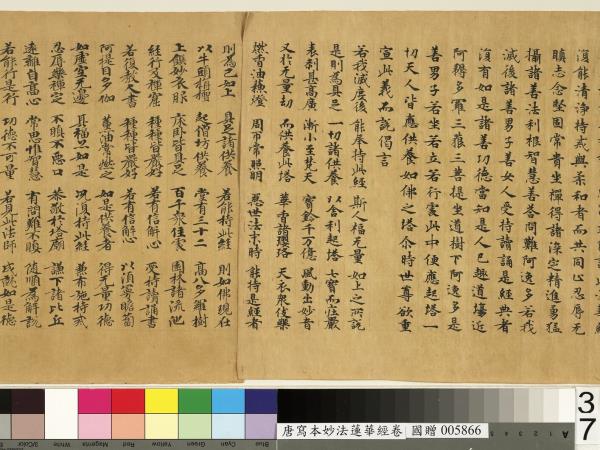 復能清淨持戒與柔和者而共同止忍辱无
瞋志念堅固常貴坐禪得諸深定精進勇猛
攝諸善法利根智慧善答問難阿逸多若我
滅後諸善男子善女人受持讀誦是經典者
復有如是諸善功德當知是人已趣道場近
阿耨多羅三藐三菩提坐道樹下阿逸多是
善男子若坐若立若行處此中便應起塔一
切天人皆應供養如佛之塔尒時世尊欲重
宣此義而說偈言
若我滅度後 能奉持此經 斯人福无量 如上之所說
是則為具足 一切諸供養 以舍利起塔 七寶而莊嚴
表剎甚高廣 漸小至梵天 寶鈴千万億 風動出妙音
又於无量劫 而供養此塔 華香諸瓔珞 天衣衆伎樂
燃香油蘇燈 周帀常照明 惡世法末時 能持是經者
則為已如上 具足諸供養 若能持此經 則如佛現在
以牛頭栴檀 起僧坊供養 堂有三十二 高八多羅樹
上饌妙衣服 床卧皆具足 百千衆住處 園林諸流池
經行及禪窟 種種皆嚴好 若有信解心 受持讀誦書
若復教人書 種種皆嚴好 若有信解心 以須曼薝蔔
阿提目多伽 薰油常燃之 如是供養者 得无量功德
如虛空无邊 其福亦如是 況復持此經 兼布施持戒
忍辱樂禪定 不瞋不惡口 恭敬於塔廟 謙下諸比丘
遠離自高心 常思惟智慧 有問難不瞋 隨順為解說
若能行是行 功德不可量 若見此法師 成就如是德
唐寫本妙法蓮華經卷 國贈 005866
37
3/Color
White
Magenta
Red
Yellow
Green
Cyan
Blue
A